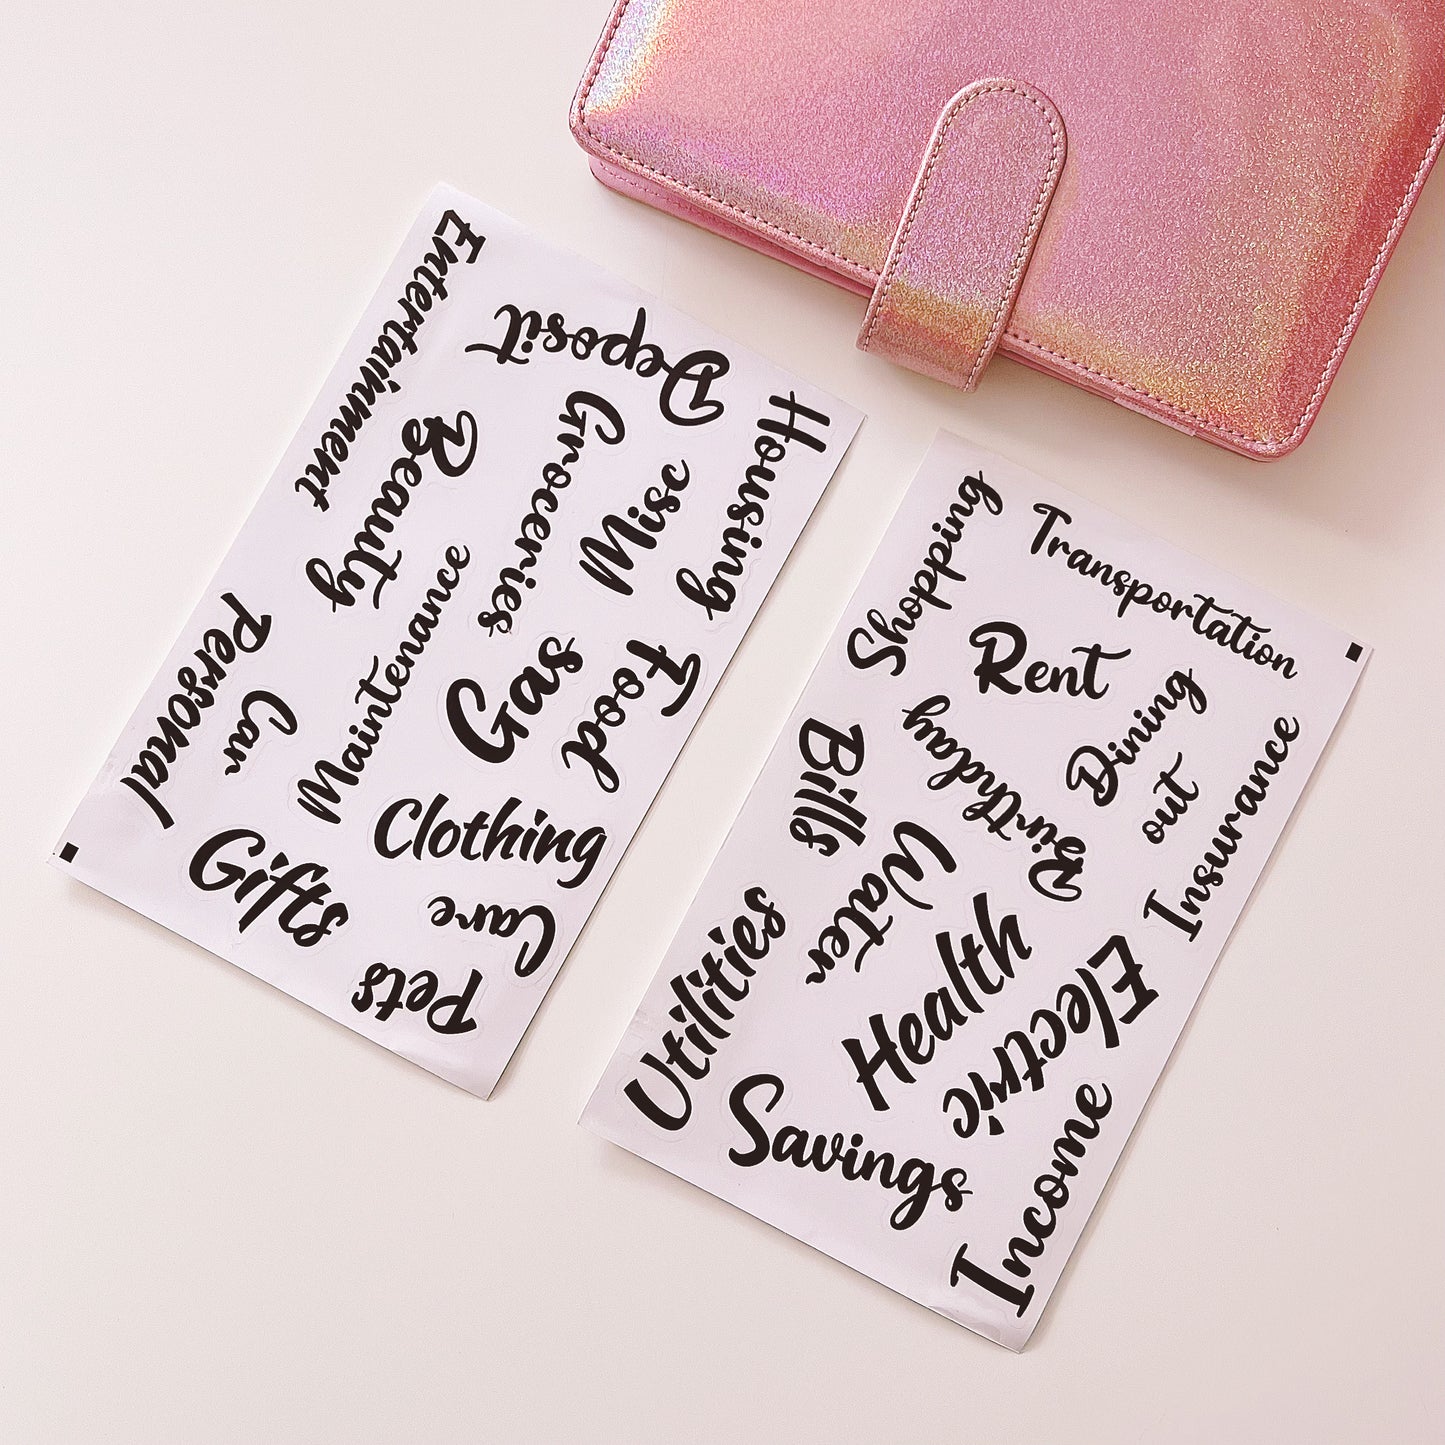 Entertainment
Deposit
Housing
Beauty
Groceries
Misc
Maintenance
Personal
Car
Gas
Food
Clothing
Gifts
Care
Pets
Shopping
Transportation
Rent
Dining
out
Birthday
Bills
Water
Insurance
Utilities
Health
Electric
Savings
Income